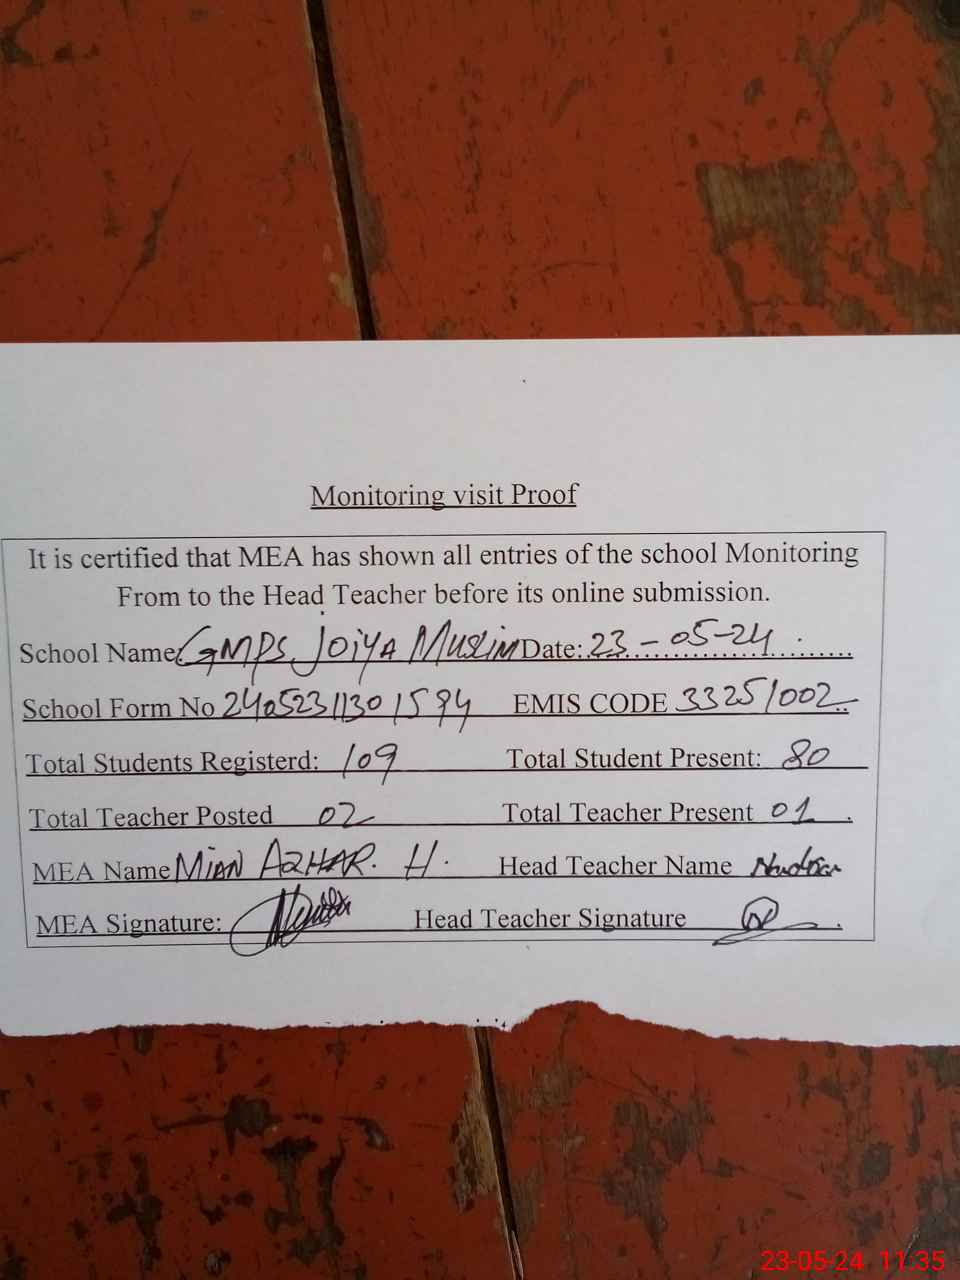 Monitoring visit Proof
It is certified that MEA has shown all entries of the school Monitoring
From to the Head Teacher before its online submission.
School Name GMPS Joiya Muslim Date: 23-05-24
School Form No 2405231130 1594 EMIS CODE 33251002
Total Students Registerd: 109 Total Student Present: 80
Total Teacher Posted 02 Total Teacher Present 01
MEA Name MIAN AZHAR. H. Head Teacher Name
MEA Signature: Head Teacher Signature
23-05-24 11:35